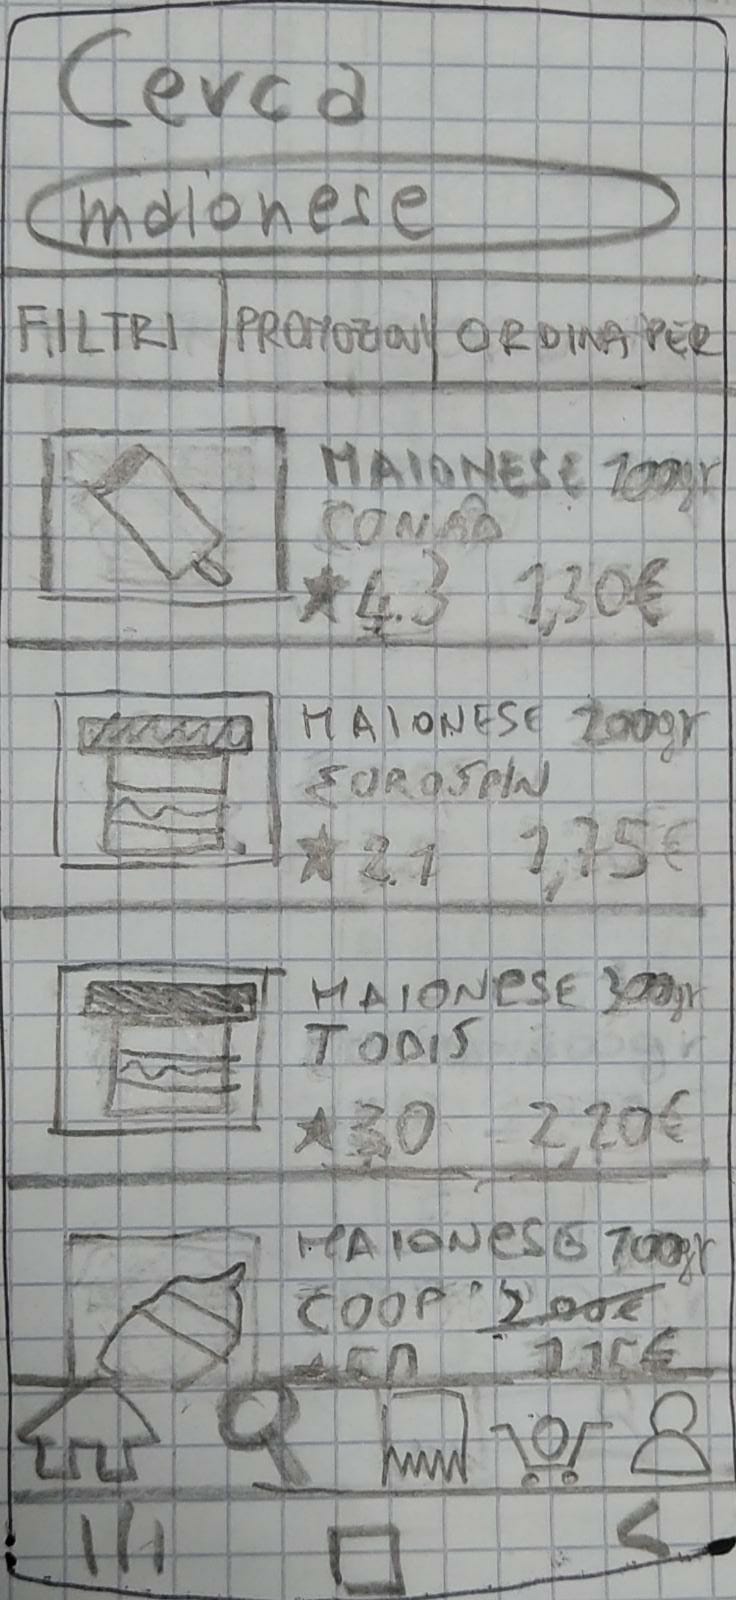 Cerca
maionese
FILTRI PROMOZIONI ORDINA PER
MAIONESE 100gr
CONAD
★ 4.3 1,30€
MAIONESE 200gr
EUROSPIN
★ 2.1 1,75€
MAIONESE 300gr
TODIS
★ 3,0 2,20€
MAIONESE 100gr
COOP 2,00€
★ 5.0